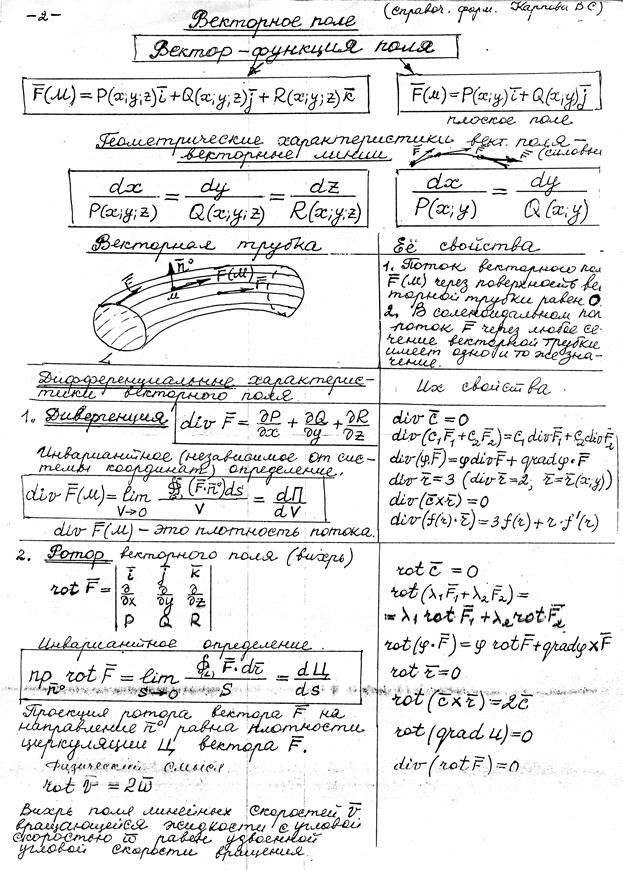 -2-
Векторное поле
(справоч. форм. Карпова ВС)
Вектор-функция поля
F̅(M)=P(x;y;z)i̅+Q(x;y;z)j̅+R(x;y;z)k̅
F̅(м)=P(x;y)i̅+Q(x;y)j̅
плоское поле
Геометрические характеристики вект. поля –
векторные линии
F̅ F̅ (силовы
dx/P(x;y;z) = dy/Q(x;y;z) = dz/R(x;y;z)
dx/P(x;y) = dy/Q(x;y)
Векторная трубка
F̅ n̅° F̅(M) F̅
M
L
Её свойства
1. Поток векторного пол
F̅(M) через поверхность ве
торной трубки равен 0.
2. В соленоидальном пол
поток F̅ через любое се-
чение векторной трубки
имеет одно и то же зна-
чение.
Дифференциальные характерис-
тики векторного поля.
1. Дивергенция div F̅ = ∂P/∂x + ∂Q/∂y + ∂R/∂z
Инвариантное (независимое от сис-
темы координат) определение.
div F̅(M) = lim V→0 ∯(F̅·n̅°)ds / V = dП/dV
div F̅(M) – это плотность потока.
Их свойства.
div c̅ = 0
div(C₁F̅₁+C₂F̅₂)=C₁divF̅₁+C₂divF̅₂
div(φF̅)=φdivF̅+gradφ·F̅
div r̅=3 (div r̅=2, r̅=r̅(x;y))
div(c̅×r̅)=0
div(f(r)·r̅)=3f(r)+r·f'(r)
2. Ротор векторного поля (вихрь)
rot F̅ = | i̅ j̅ k̅ |
| ∂/∂x ∂/∂y ∂/∂z |
| P Q R |
Инвариантное определение.
пр n̅° rot F̅ = lim S→0 ∮(L) F̅·dr̅ / S = dЦ/ds
Проекция ротора вектора F̅ на
направление n̅° равна плотности
циркуляции Ц вектора F̅.
Физический смысл
rot v̅ = 2ω̅
Вихрь поля линейных скоростей v̅
вращающейся жидкости с угловой
скоростью ω̅ равен удвоенной
угловой скорости вращения.
rot c̅ = 0
rot(λ₁F̅₁+λ₂F̅₂)=
=λ₁rot F̅₁+λ₂rot F̅₂
rot(φ·F̅)=φ rotF̅+gradφ×F̅
rot r̅=0
rot(c̅×r̅)=2c̅
rot(grad u)=0
div(rotF̅)=0